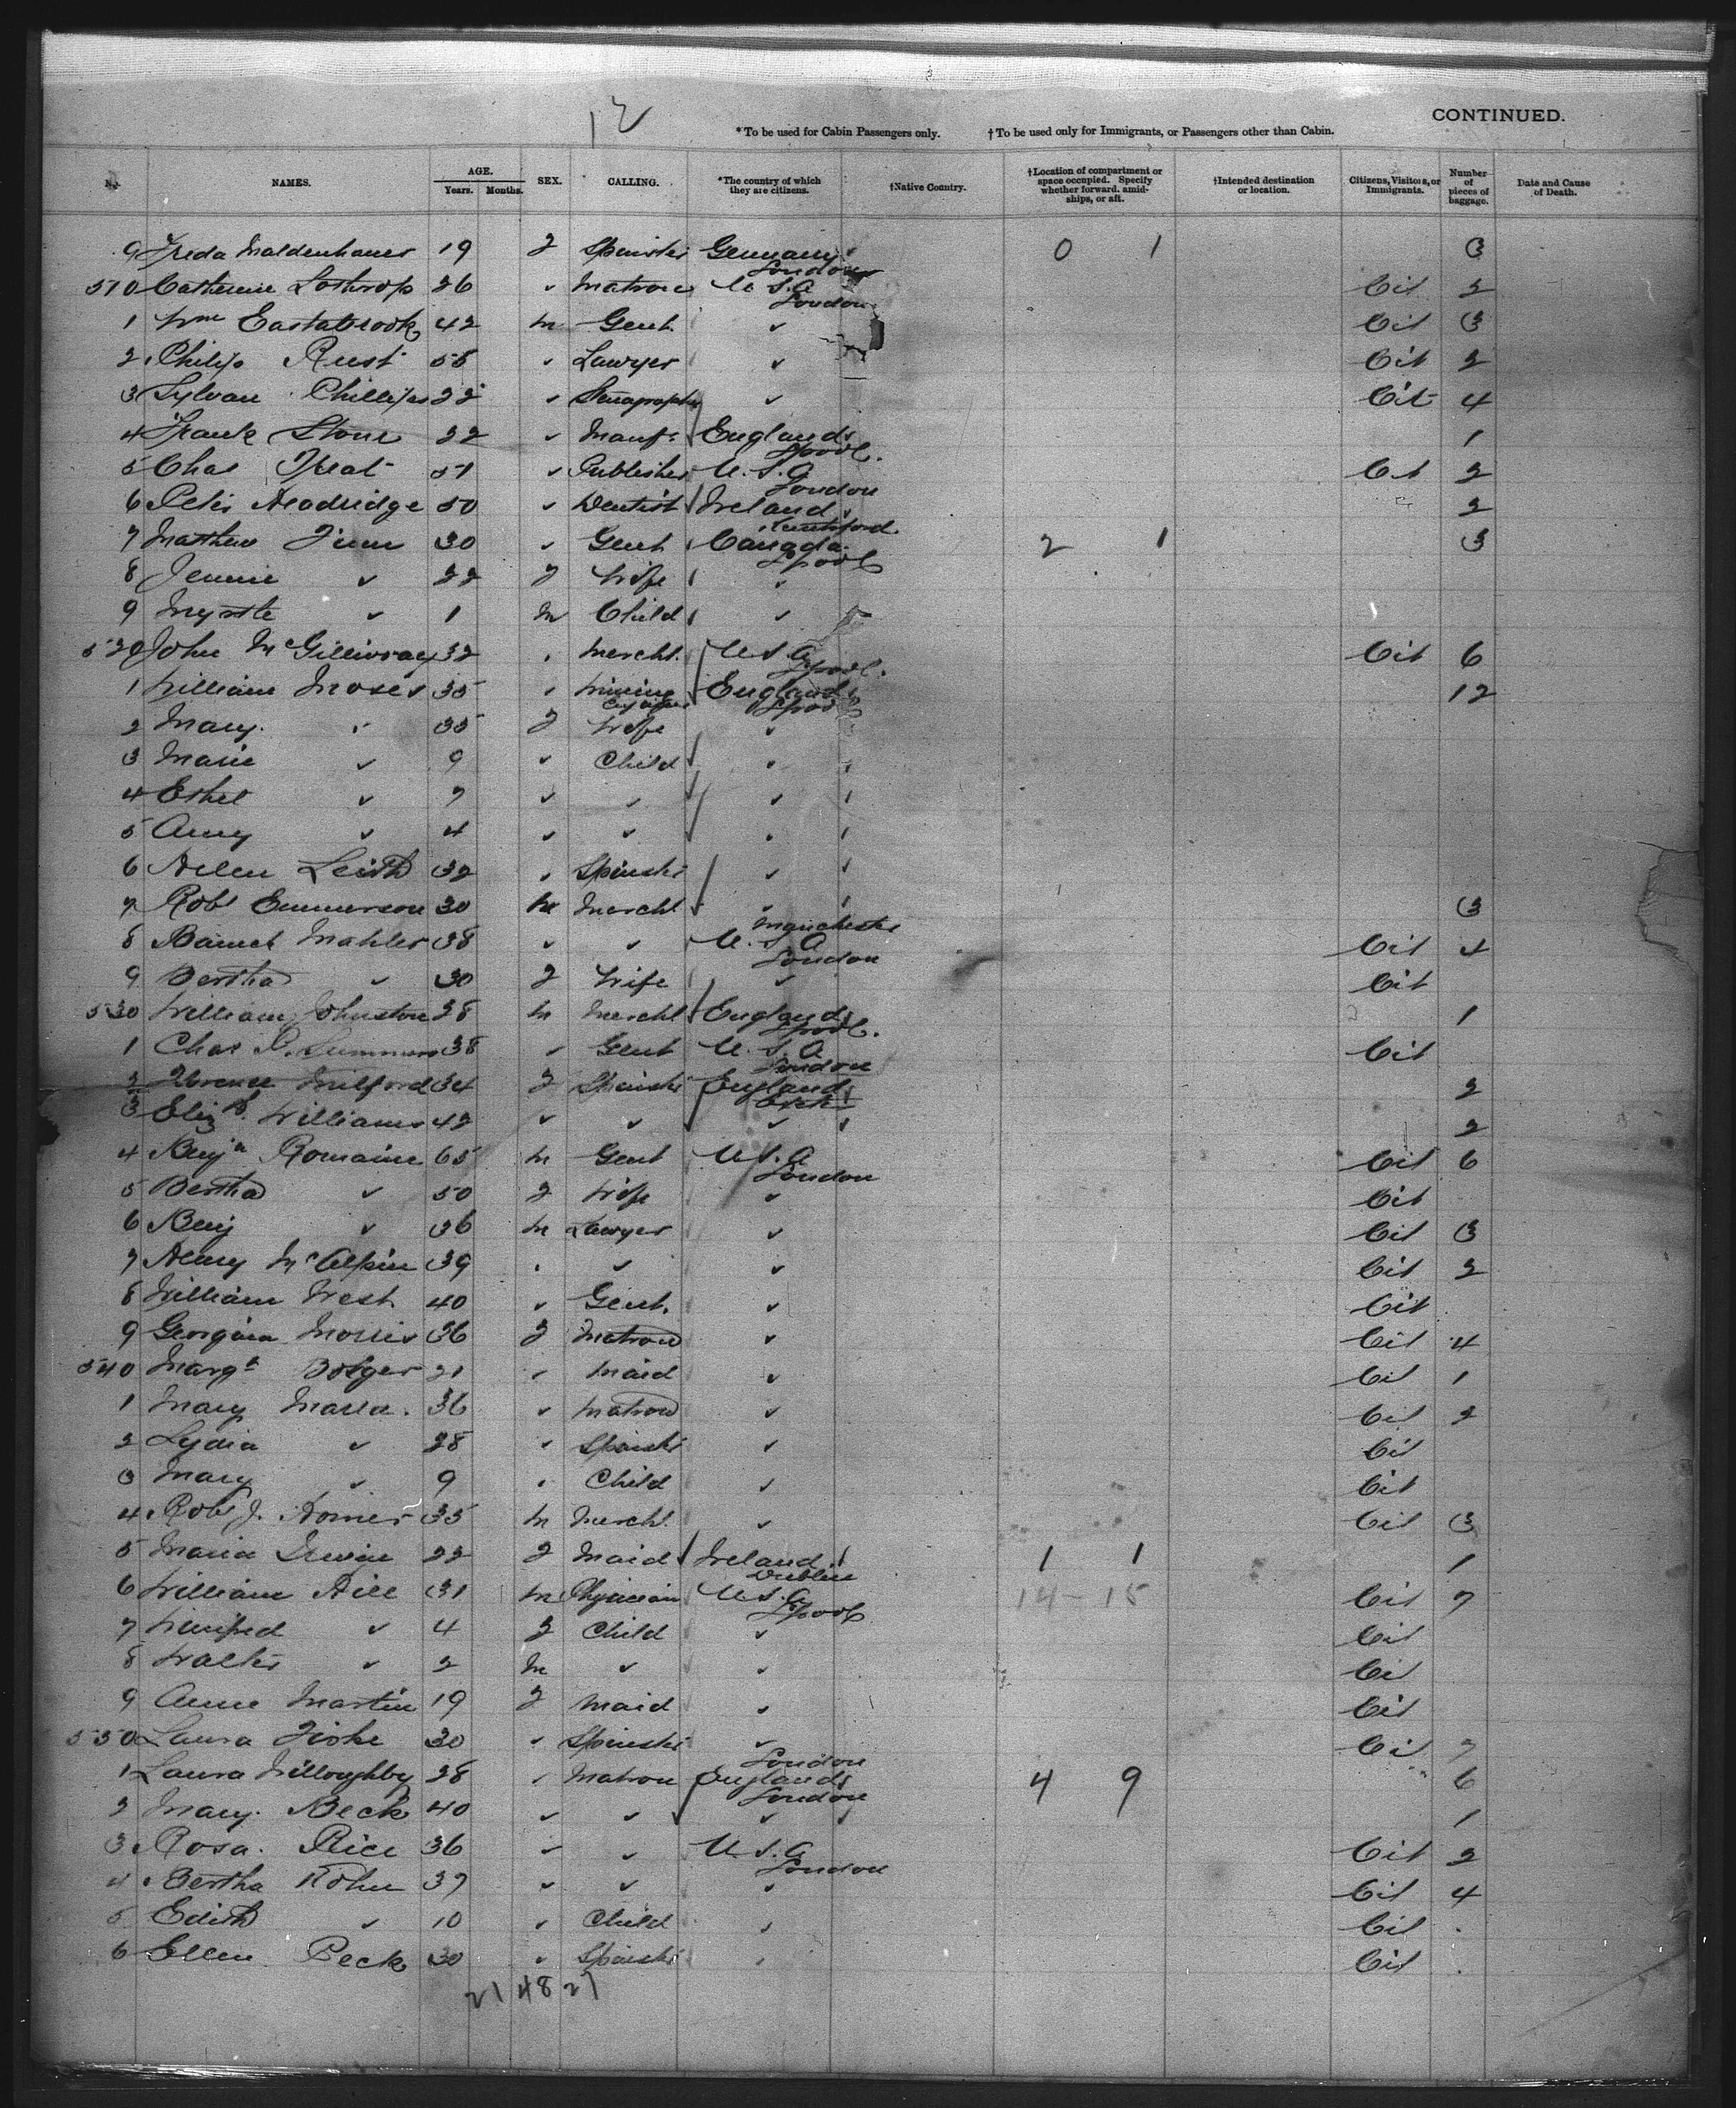 12
CONTINUED.
*To be used for Cabin Passengers only. †To be used only for Immigrants, or Passengers other than Cabin.
No. NAMES. AGE. Years. Months. SEX. CALLING. *The country of which they are citizens. †Native Country. †Location of compartment or space occupied. Specify whether forward, amidships, or aft. †Intended destination or location. Citizens, Visitors, or Immigrants. Number of pieces of baggage. Date and Cause of Death.
9 Freda Maldenhauer 19 F Spinster Germany London 0 1 3
510 Catherine Lothrop 26 ✓ Matron U.S.A London Cit 2
1 Wm Eastabrook 42 M Gent. ✓ Cit 3
2 Philip Rust 55 ✓ Lawyer ✓ Cit 2
3 Sylvan Phillips 22 ✓ Stenographer ✓ Cit 4
4 Frank Stone 32 ✓ Manfr England Lpool. 1
5 Chas Treat 51 ✓ Publisher U.S.A London Cit 2
6 Peter 50 ✓ Dentist Ireland 2
7 Mathew Finn 30 ✓ Gent Canada Lpool 2 1 3
8 Jennie ✓ 22 F Wife ✓
9 Myrtle ✓ 1 M Child ✓
520 John McGillivray 32 ✓ Mercht. U.S.A Lpool. Cit 6
1 William Moses 35 ✓ Mining Engineer England Lpool 12
2 Mary ✓ 35 F Wife ✓
3 Marie ✓ 9 ✓ Child ✓
4 Ethel ✓ 7 ✓ ✓ ✓
5 Amy ✓ 4 ✓ ✓ ✓
6 Helen Leith 32 ✓ Spinster ✓
7 Robt Emmerson 30 M Mercht ✓ Manchester 3
8 Baruch Mahler 38 ✓ ✓ U.S.A London Cit 4
9 Bertha ✓ 30 F Wife ✓ Cit
530 William Johnston 28 M Mercht England Lpool. 1
1 Chas D. Summers 38 ✓ Gent U.S.A London Cit
2 Florence Milford 34 F Spinster England 2
3 Eliz. Williams 42 ✓ ✓ ✓ 2
4 Benjn Romaine 65 M Gent U.S.A London Cit 6
5 Bertha ✓ 50 F Wife ✓ Cit
6 Benj ✓ 36 M Lawyer ✓ Cit 3
7 Henry McAlpin 39 ✓ ✓ ✓ Cit 2
8 William West 40 ✓ Gent. ✓ Cit
9 Georgina Morris 36 F Matron ✓ Cit 4
540 Margt Bolger 21 ✓ Maid ✓ Cit 1
1 Mary 36 ✓ Matron ✓ Cit 2
2 Lydia ✓ 28 ✓ Spinster ✓ Cit
3 Mary ✓ 9 ✓ Child ✓ Cit
4 Robt J. Horner 35 M Mercht. ✓ Cit 3
5 Maria 22 F Maid Ireland Dublin 1 1 1
6 William Hill 31 M Physician U.S.A Lpool 14-15 Cit 7
7 Winifred ✓ 4 F Child ✓ Cit
8 Walter ✓ 2 M ✓ ✓ Cit
9 Anne Martin 19 F Maid ✓ Cit
550 Laura Fiske 30 ✓ Spinster ✓ London Cit 7
1 Laura Willoughby 28 ✓ Matron England London 4 9 6
2 Mary. Beck 40 ✓ ✓ ✓ 1
3 Rosa. Rice 36 ✓ ✓ U.S.A London Cit 2
4 Bertha Kohn 37 ✓ ✓ ✓ Cit 4
5 Edith ✓ 10 ✓ Child ✓ Cit
6 Ellen Peck 30 ✓ Spinster ✓ Cit
21 48 27